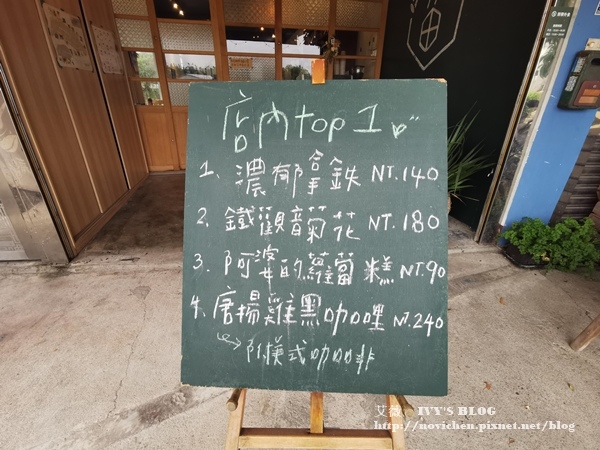 店內top 1
1、濃郁拿鉄 NT.140
2、鐵觀音菊花 NT.180
3、阿婆的蘿蔔糕 NT.90
4、唐揚雞黑咖哩 NT.240
附美式咖啡
艾薇 IVY'S BLOG
http://novichen.pixnet.net/blog